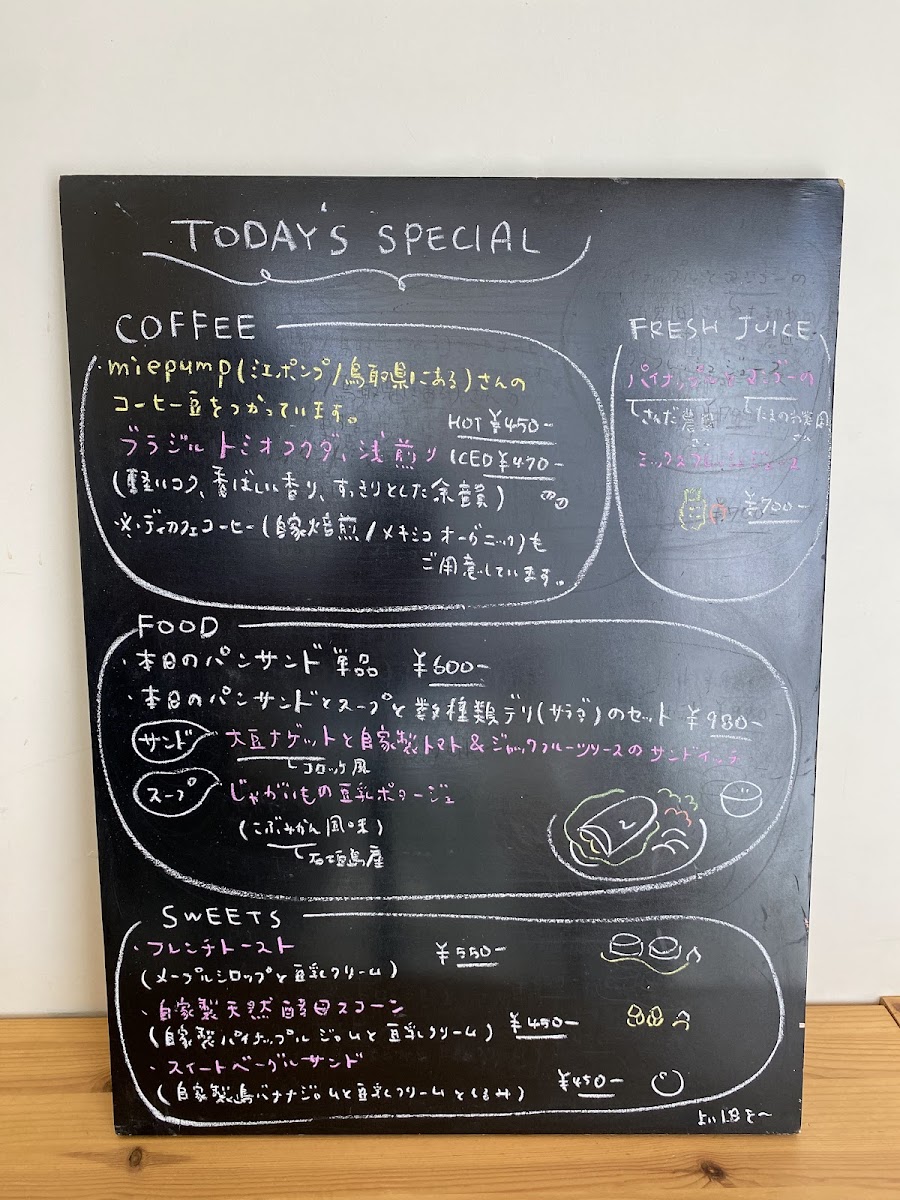 TODAY'S SPECIAL
COFFEE
・miepump(ミエポンプ/鳥取県にある)さんの
コーヒー豆をつかっています。
HOT ¥450-
ブラジル トミオフクダ、浅煎り
ICED ¥470-
(軽いコク、香ばしい香り、すっきりとした余韻)
※ディカフェコーヒー(自家焙煎/メキシコオーガニック)も
ご用意しています。
FRESH JUICE
パイナップルとマンゴーの
さんだ農園
さん
ミックスフレッシュジュース
¥700-
FOOD
・本日のパンサンド 単品 ¥600-
・本日のパンサンドとスープと数種類デリ(サラダ)のセット ¥980-
サンド 大豆ナゲットと自家製トマト&ジャックフルーツソースのサンドイッチ
コロッケ風
スープ じゃがいもの豆乳ポタージュ
(こぶみかん風味)
石垣島産
SWEETS
・フレンチトースト ¥550-
(メープルシロップと豆乳クリーム)
・自家製天然酵母スコーン
(自家製パイナップルジャムと豆乳クリーム) ¥450-
・スイートベーグルサンド
(自家製島バナナジャムと豆乳クリームとくるみ) ¥450-
よい1日を〜